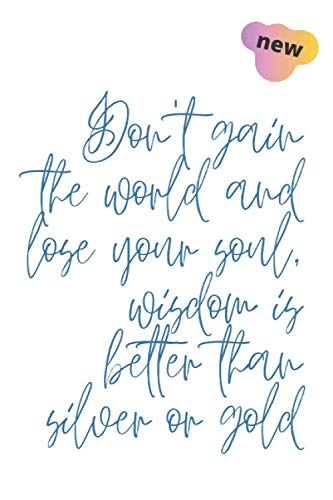 new
Don't gain
the world and
lose your soul,
wisdom is
better than
silver or gold